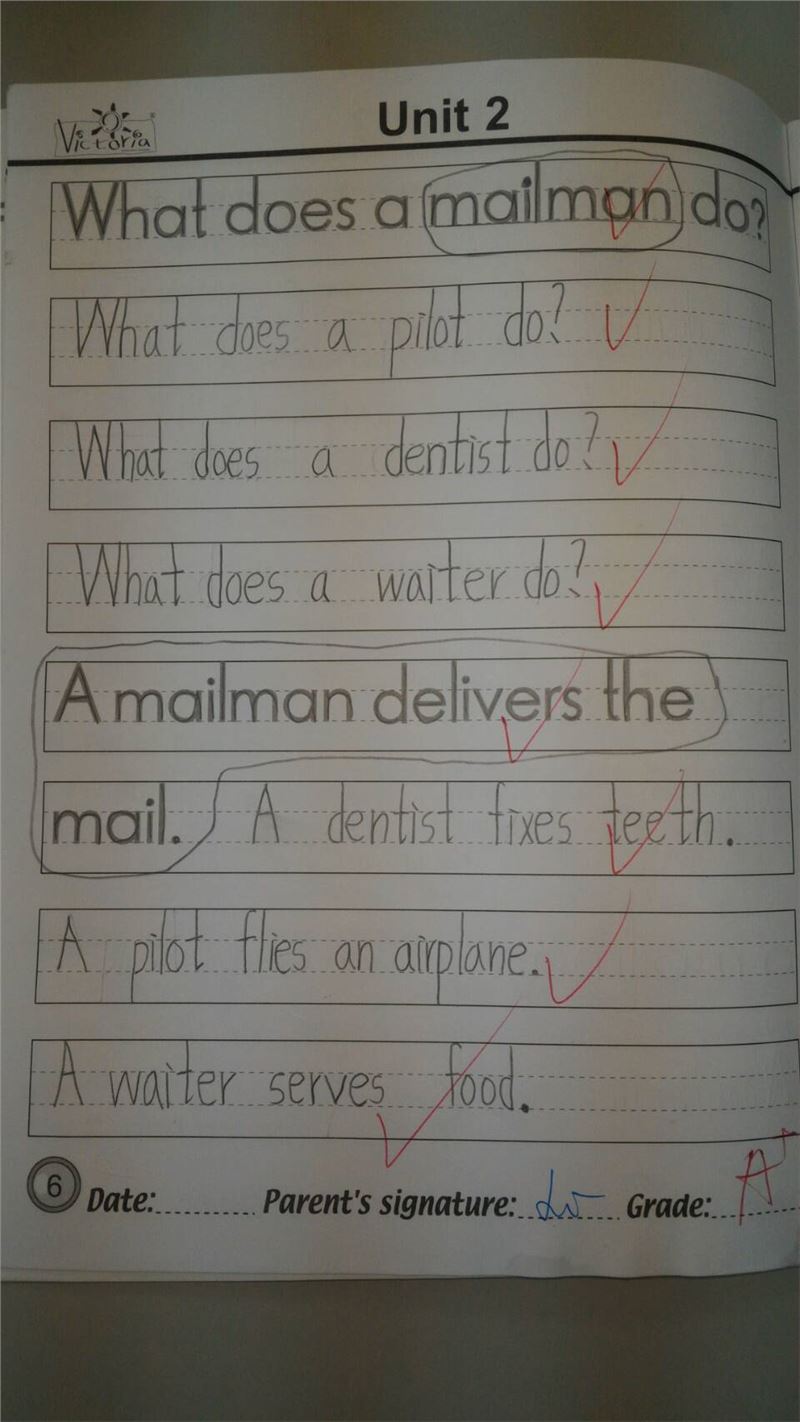 Victoria
Unit 2
What does a mailman do?
What does a pilot do?
What does a dentist do?
What does a waiter do?
A mailman delivers the
mail. A dentist fixes teeth.
A pilot flies an airplane.
A waiter serves food.
6 Date:.......... Parent's signature:.......... Grade: A+